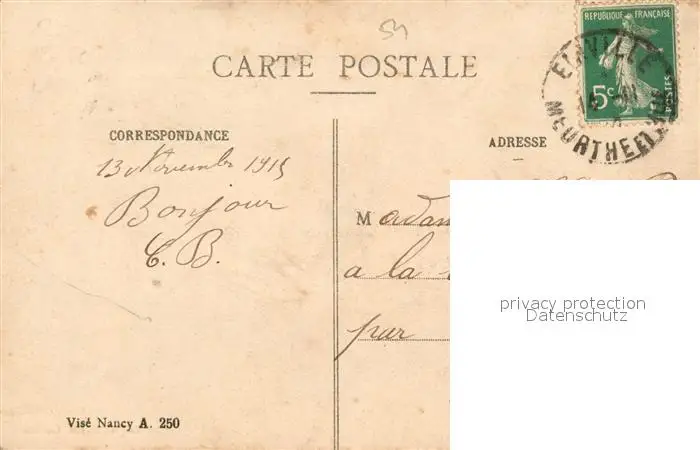 54
CARTE POSTALE
REPUBLIQUE FRANÇAISE
5c
POSTES
EINVILLE
MEURTHE ET
CORRESPONDANCE
13 Novembre 1915
Bonjour
C. B.
ADRESSE
Madam
a la
par
privacy protection
Datenschutz
Visé Nancy A. 250